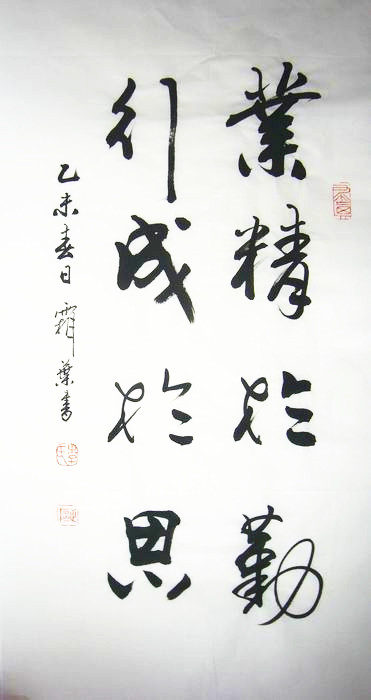 業精於勤
行成於思
乙未春日霜葉書